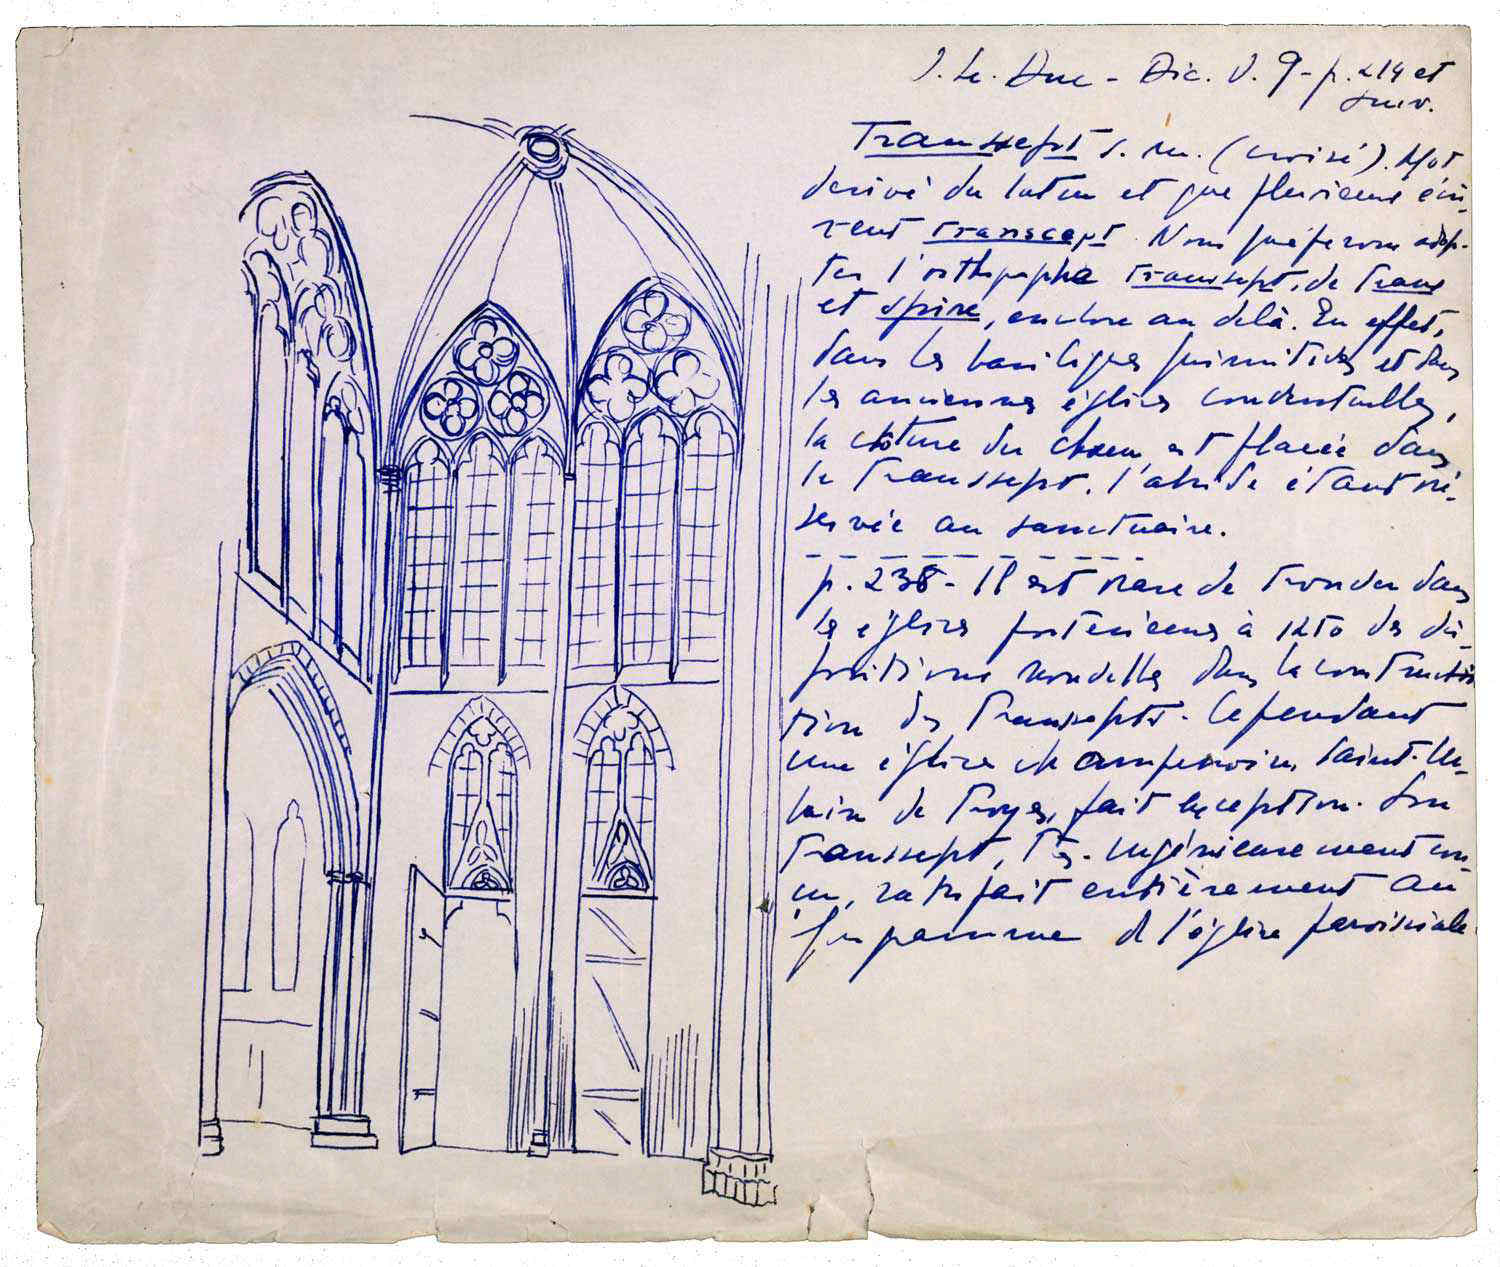 V. Le Duc - Dic. V. 9 - p. 214 et
suiv.
Transsept s. m. (croisé). Mot
derivé du latin et que plusieurs écri-
vent transcept. Nous préferons adop-
ter l'orthographe transsept, de trans
et spire, enclore au delà. En effet,
dans les basiliques primitives et dans
les anciennes églises conventuelles,
la clôture du choeur est placée dans
le transsept, l'abside étant ré-
servée au sanctuaire.
p. 238 - Il est rare de trouver dans
les églises posterieures à 1250 des dis-
positions nouvelles dans la construc-
tion des transsepts. Cependant
une église champenoise, Saint-Ur-
bain de Troyes, fait exception. Son
transsept, très ingénieusement con-
çu, satisfait entièrement au
programme de l'église paroissiale.